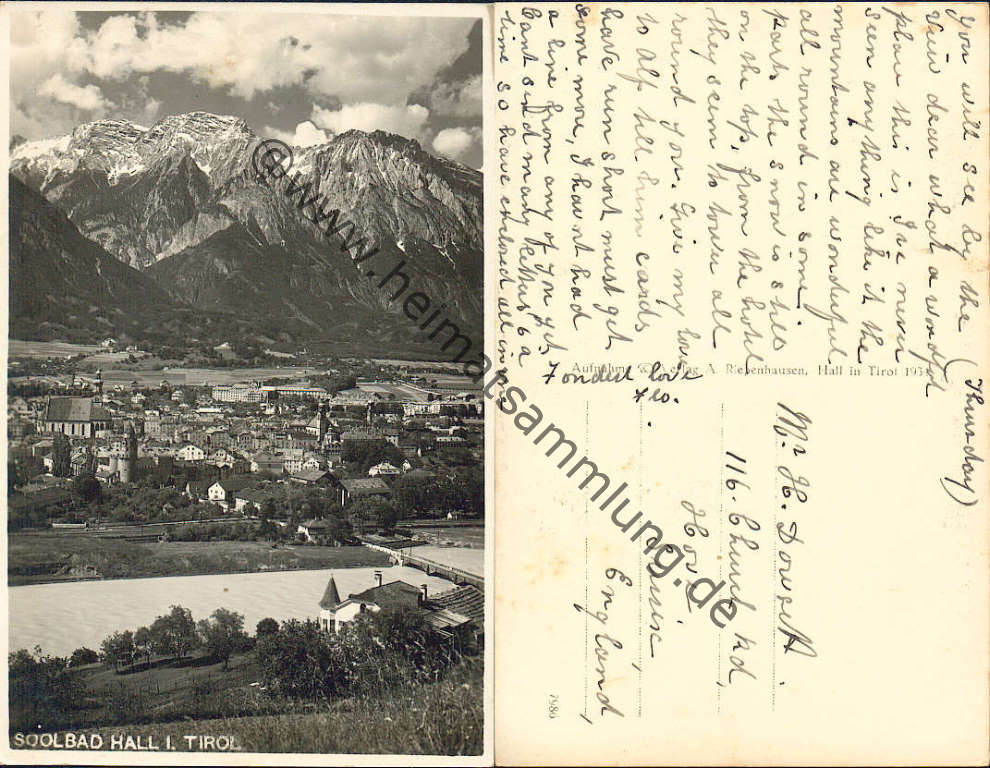 SOOLBAD HALL I. TIROL
©www.heimatsammlung.de
(Thursday)
You will see by the
view dear what a wonderful
place this is I've never
seen anything like it the
mountains are wonderful
all round in some
parts the snow is still
on the top, from the hotel
they seem to tower all
round you. Give my love
to Alf tell him cards
have run short must get
some more, I havnt had
a line from any of you yet,
Cant send many letters 6 a
time so have enclosed all in
Fondest love
Flo.
Aufnahme u. Verlag A. Riepenhausen, Hall in Tirol 193
Mr H. Dowsett.
116. Church Rd
Hove
Sussex
England,
7986